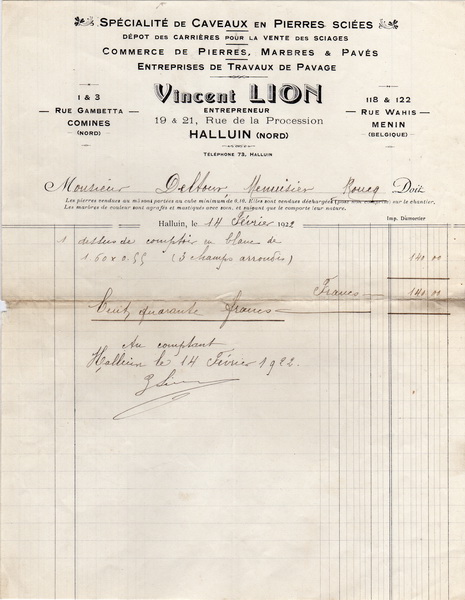 SPÉCIALITÉ DE CAVEAUX EN PIERRES SCIÉES
DÉPOT DES CARRIÈRES POUR LA VENTE DES SCIAGES
COMMERCE DE PIERRES, MARBRES & PAVÉS
ENTREPRISES DE TRAVAUX DE PAVAGE
Vincent LION
ENTREPRENEUR
19 & 21, Rue de la Procession
HALLUIN (NORD)
TÉLÉPHONE 73, HALLUIN
1 & 3
RUE GAMBETTA
COMINES
(NORD)
118 & 122
RUE WAHIS
MENIN
(BELGIQUE)
Monsieur Deltour, Menuisier Roncq Doit
Les pierres vendues au m3 sont portées au cube minimum de 0.10. Elles sont vendues déchargées sur le chantier.
Les marbres de couleur sont agrafés et mastiqués avec soin, et suivant que le comporte leur nature.
Imp. Dumortier
Halluin, le 14 Février 1922
1 dessus de comptoir en blanc de
1 60 x 0.55 (3 champs arrondis) 140 00
Francs 140 00
Cent quarante francs
Au comptant
Halluin le 14 Février 1922.